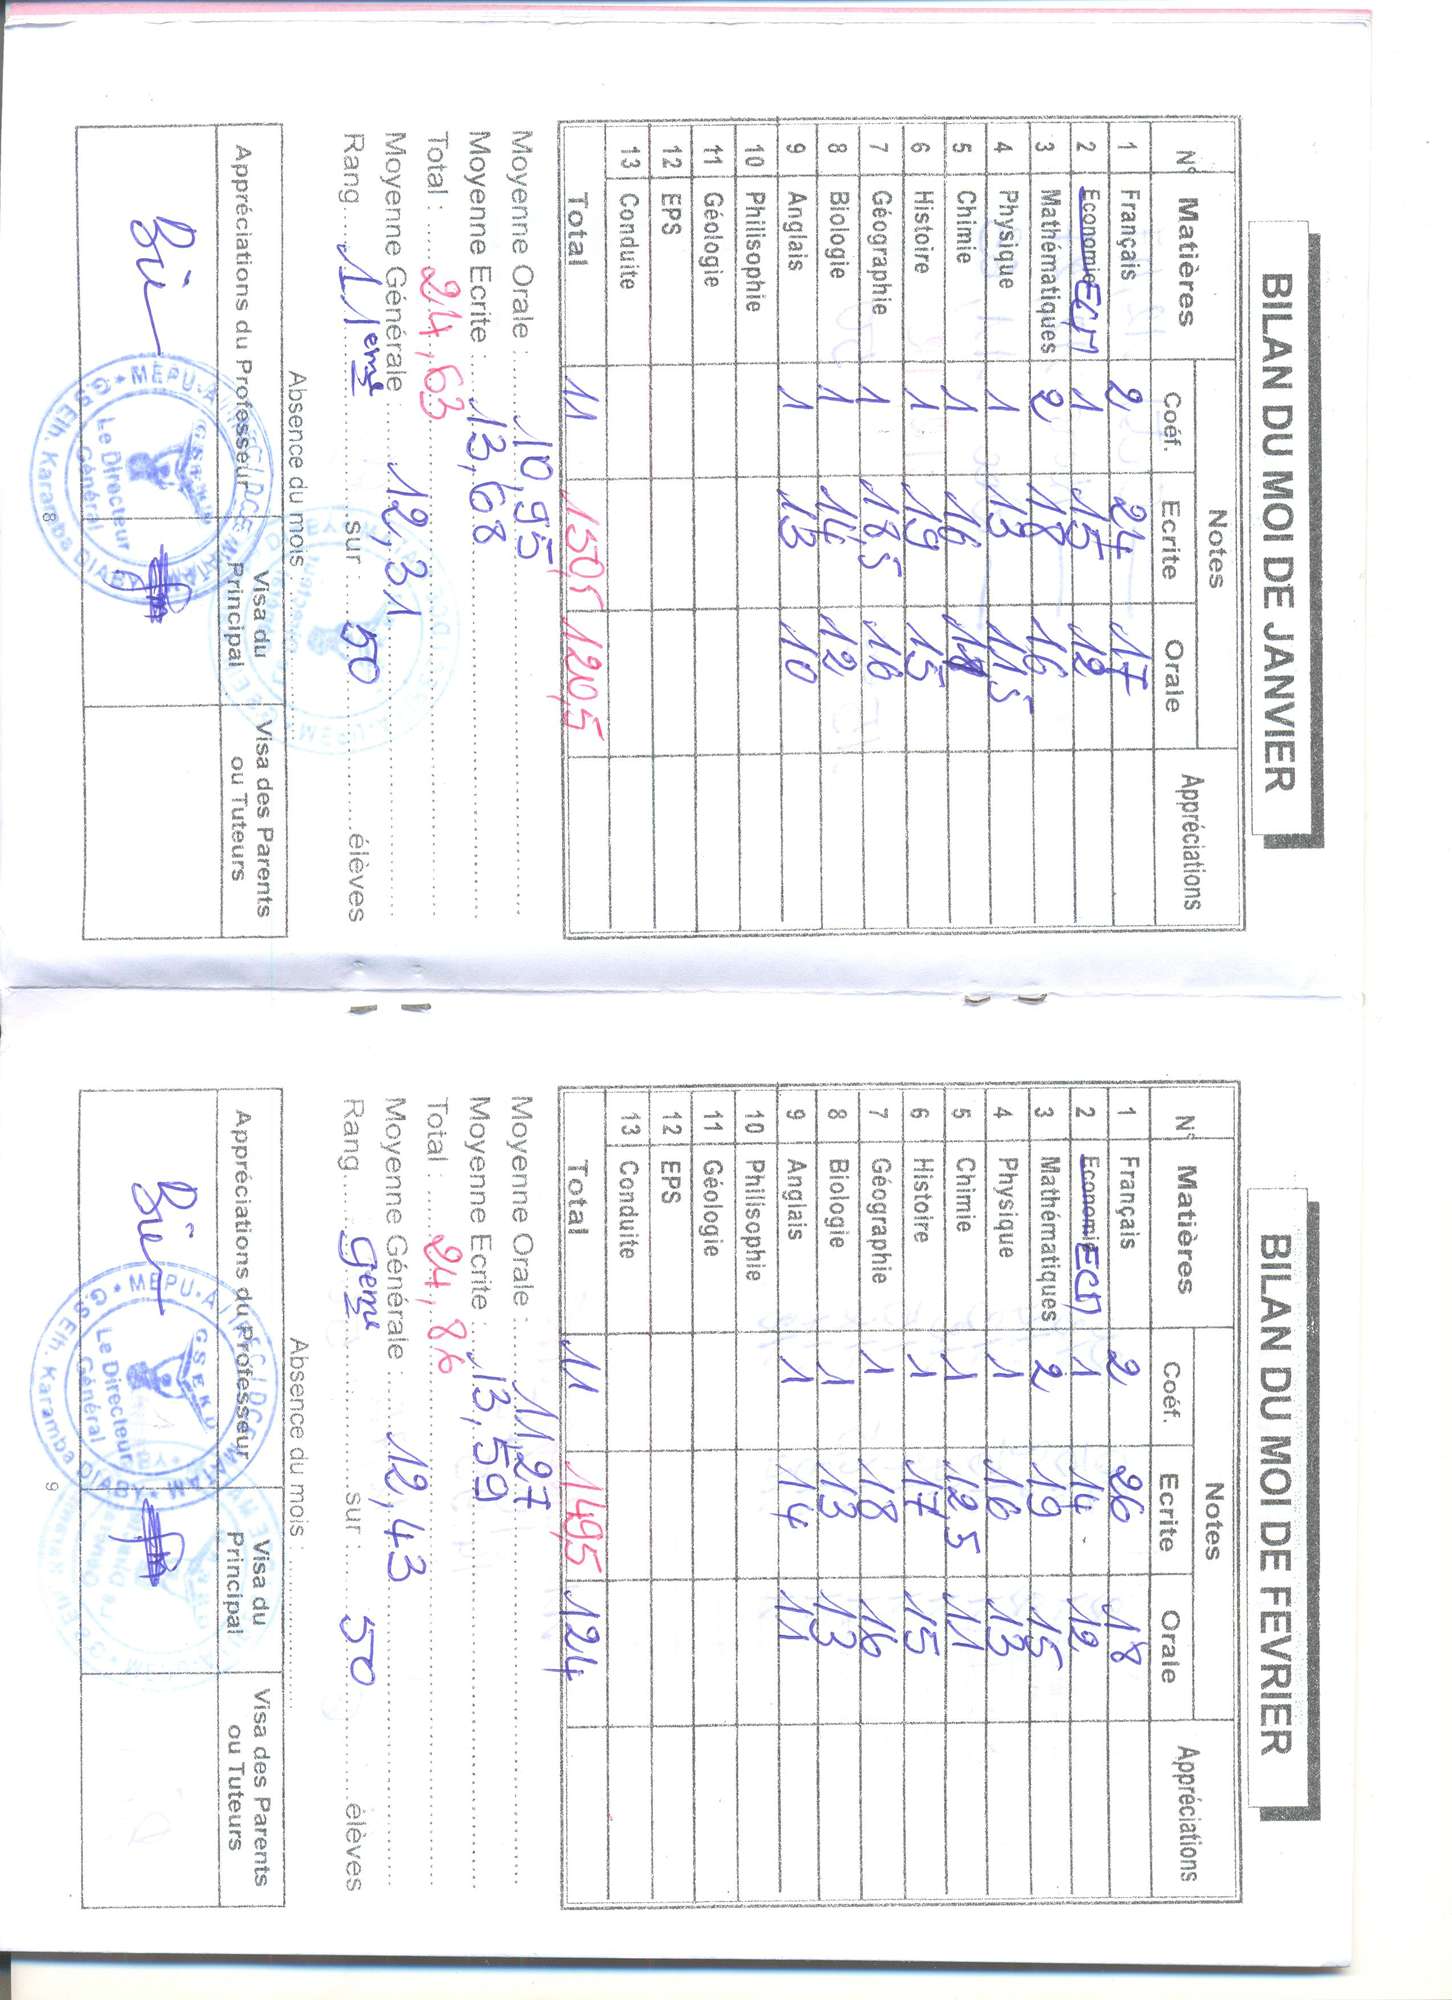 BILAN DU MOI DE JANVIER
N° Matières Notes Appréciations
Coéf. Ecrite Orale
1 Français 2 24 17
2 Economie ECM 1 15 12
3 Mathématiques 2 18 16
4 Physique 1 13 11,5
5 Chimie 1 16 11
6 Histoire 1 19 15
7 Géographie 1 18,5 16
8 Biologie 1 14 12
9 Anglais 1 13 10
10 Philisophie
11 Géologie
12 EPS
13 Conduite
Total 11 150,5 120,5
Moyenne Orale : 10,95
Moyenne Ecrite : 13,68
Total : 24,63
Moyenne Générale : 12,31
Rang 11eme sur : 50 élèves
Absence du mois :
Appréciations du Professeur Visa du Principal Visa des Parents ou Tuteurs
Bien
MEPU-A
Le Directeur Général
G.S Elh. Karamba DIABY
8
BILAN DU MOI DE FEVRIER
N° Matières Notes Appréciations
Coéf. Ecrite Orale
1 Français 2 26 18
2 Economie ECM 1 14 12
3 Mathématiques 2 19 15
4 Physique 1 16 13
5 Chimie 1 12,5 11
6 Histoire 1 17 15
7 Géographie 1 18 16
8 Biologie 1 13 13
9 Anglais 1 14 11
10 Philisophie
11 Géologie
12 EPS
13 Conduite
Total 11 149,5 124
Moyenne Orale : 11,27
Moyenne Ecrite : 13,59
Total : 24,86
Moyenne Générale : 12,43
Rang 9eme sur : 50 élèves
Absence du mois :
Appréciations du Professeur Visa du Principal Visa des Parents ou Tuteurs
Bien
MEPU-A
GSEKD
Le Directeur Général
G.S Elh. Karamba DIABY
9